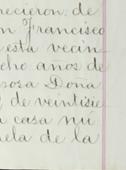 recieron: de
n Francisco
esta vecin-
cho años de
rosa Doña
y de veintisie
a casa nú
uela de la